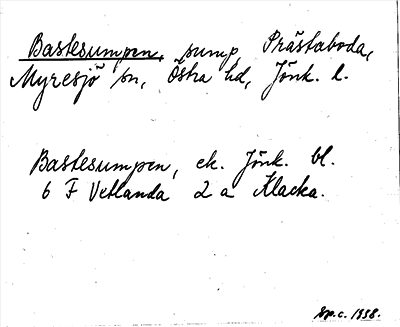 Bastesumpen, sump, Prästaboda,
Myresjö sn, Östra hd, Jönk. l.
Bastesumpen, ek. Jönk. bl.
6 F Vetlanda 2 a Klacka.
1958.